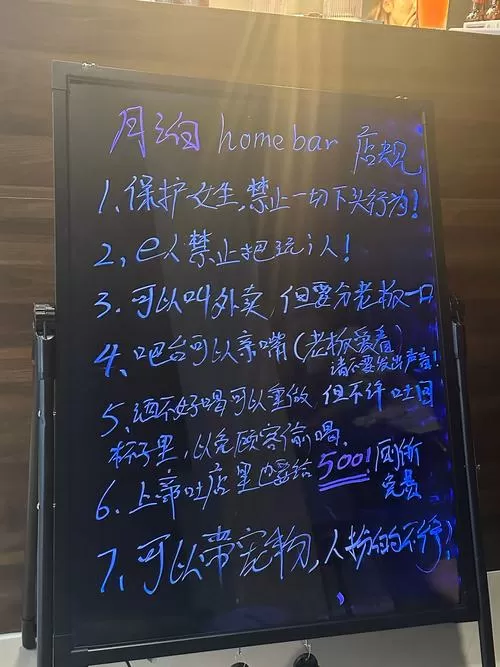 月泊 homebar 店规
1、保护女生,禁止一切下头行为!
2、e人禁止把玩i人!
3、可以叫外卖,但要分老板一口
4、吧台可以亲嘴(老板爱看)
请不要发出声音!
5、酒不好喝可以重做,但不许吐回
杯子里,以免顾客偷喝.
6、上帝吐店里也要给500!厕所
免费
7、可以带宠物,人扮的不行!